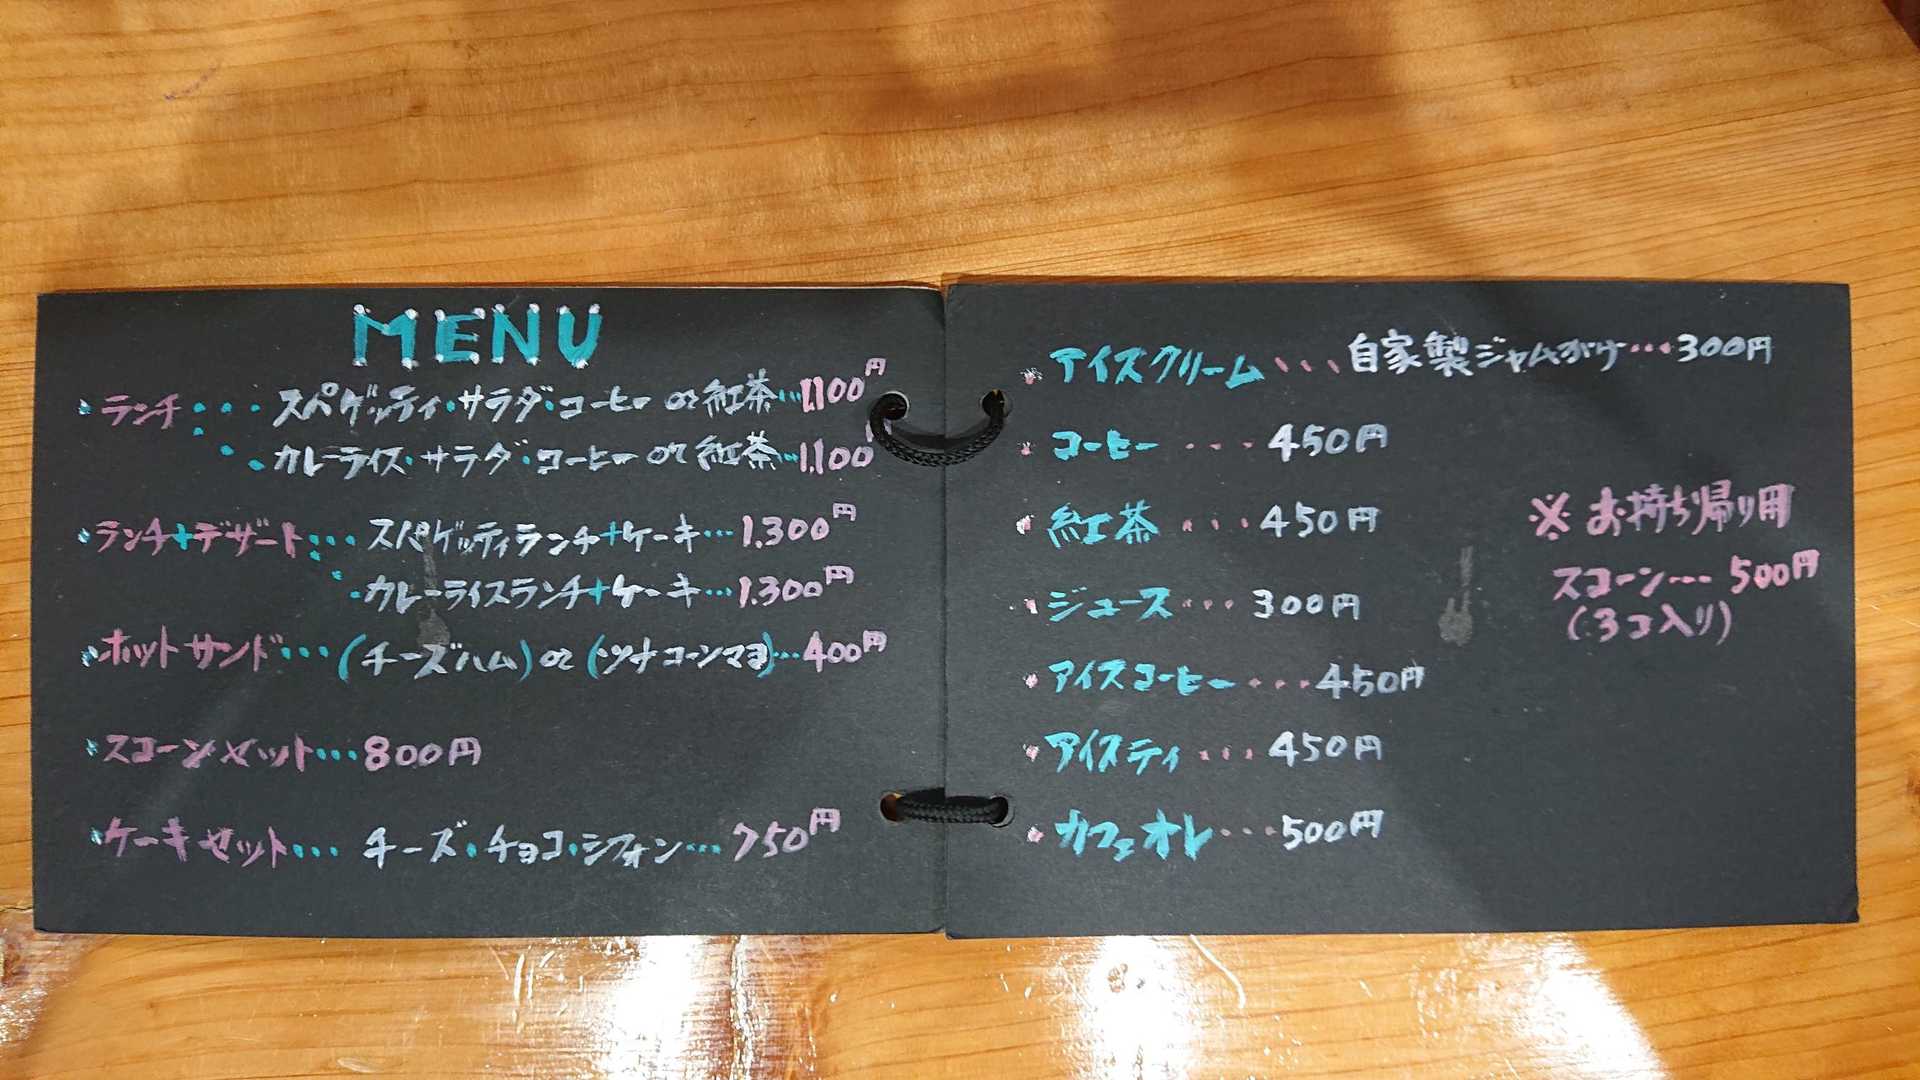 MENU
・ランチ・・・スパゲッティ・サラダ・コーヒー or 紅茶…1,100円
・・カレーライス・サラダ・コーヒー or 紅茶…1,100円
・ランチ+デザート・・・スパゲッティランチ+ケーキ…1,300円
・カレーライスランチ+ケーキ…1,300円
・ホットサンド・・・(チーズハム) or (ツナコーンマヨ)…400円
・スコーンセット・・・800円
・ケーキセット・・・チーズ・チョコ・シフォン…750円
・アイスクリーム・・・自家製ジャムがけ・・・300円
・コーヒー・・・・450円
・紅茶・・・・450円
・ジュース・・・300円
・アイスコーヒー・・・・450円
・アイスティ・・・・450円
・カフェオレ・・・・500円
※お持ち帰り用
スコーン…500円
(3コ入り)